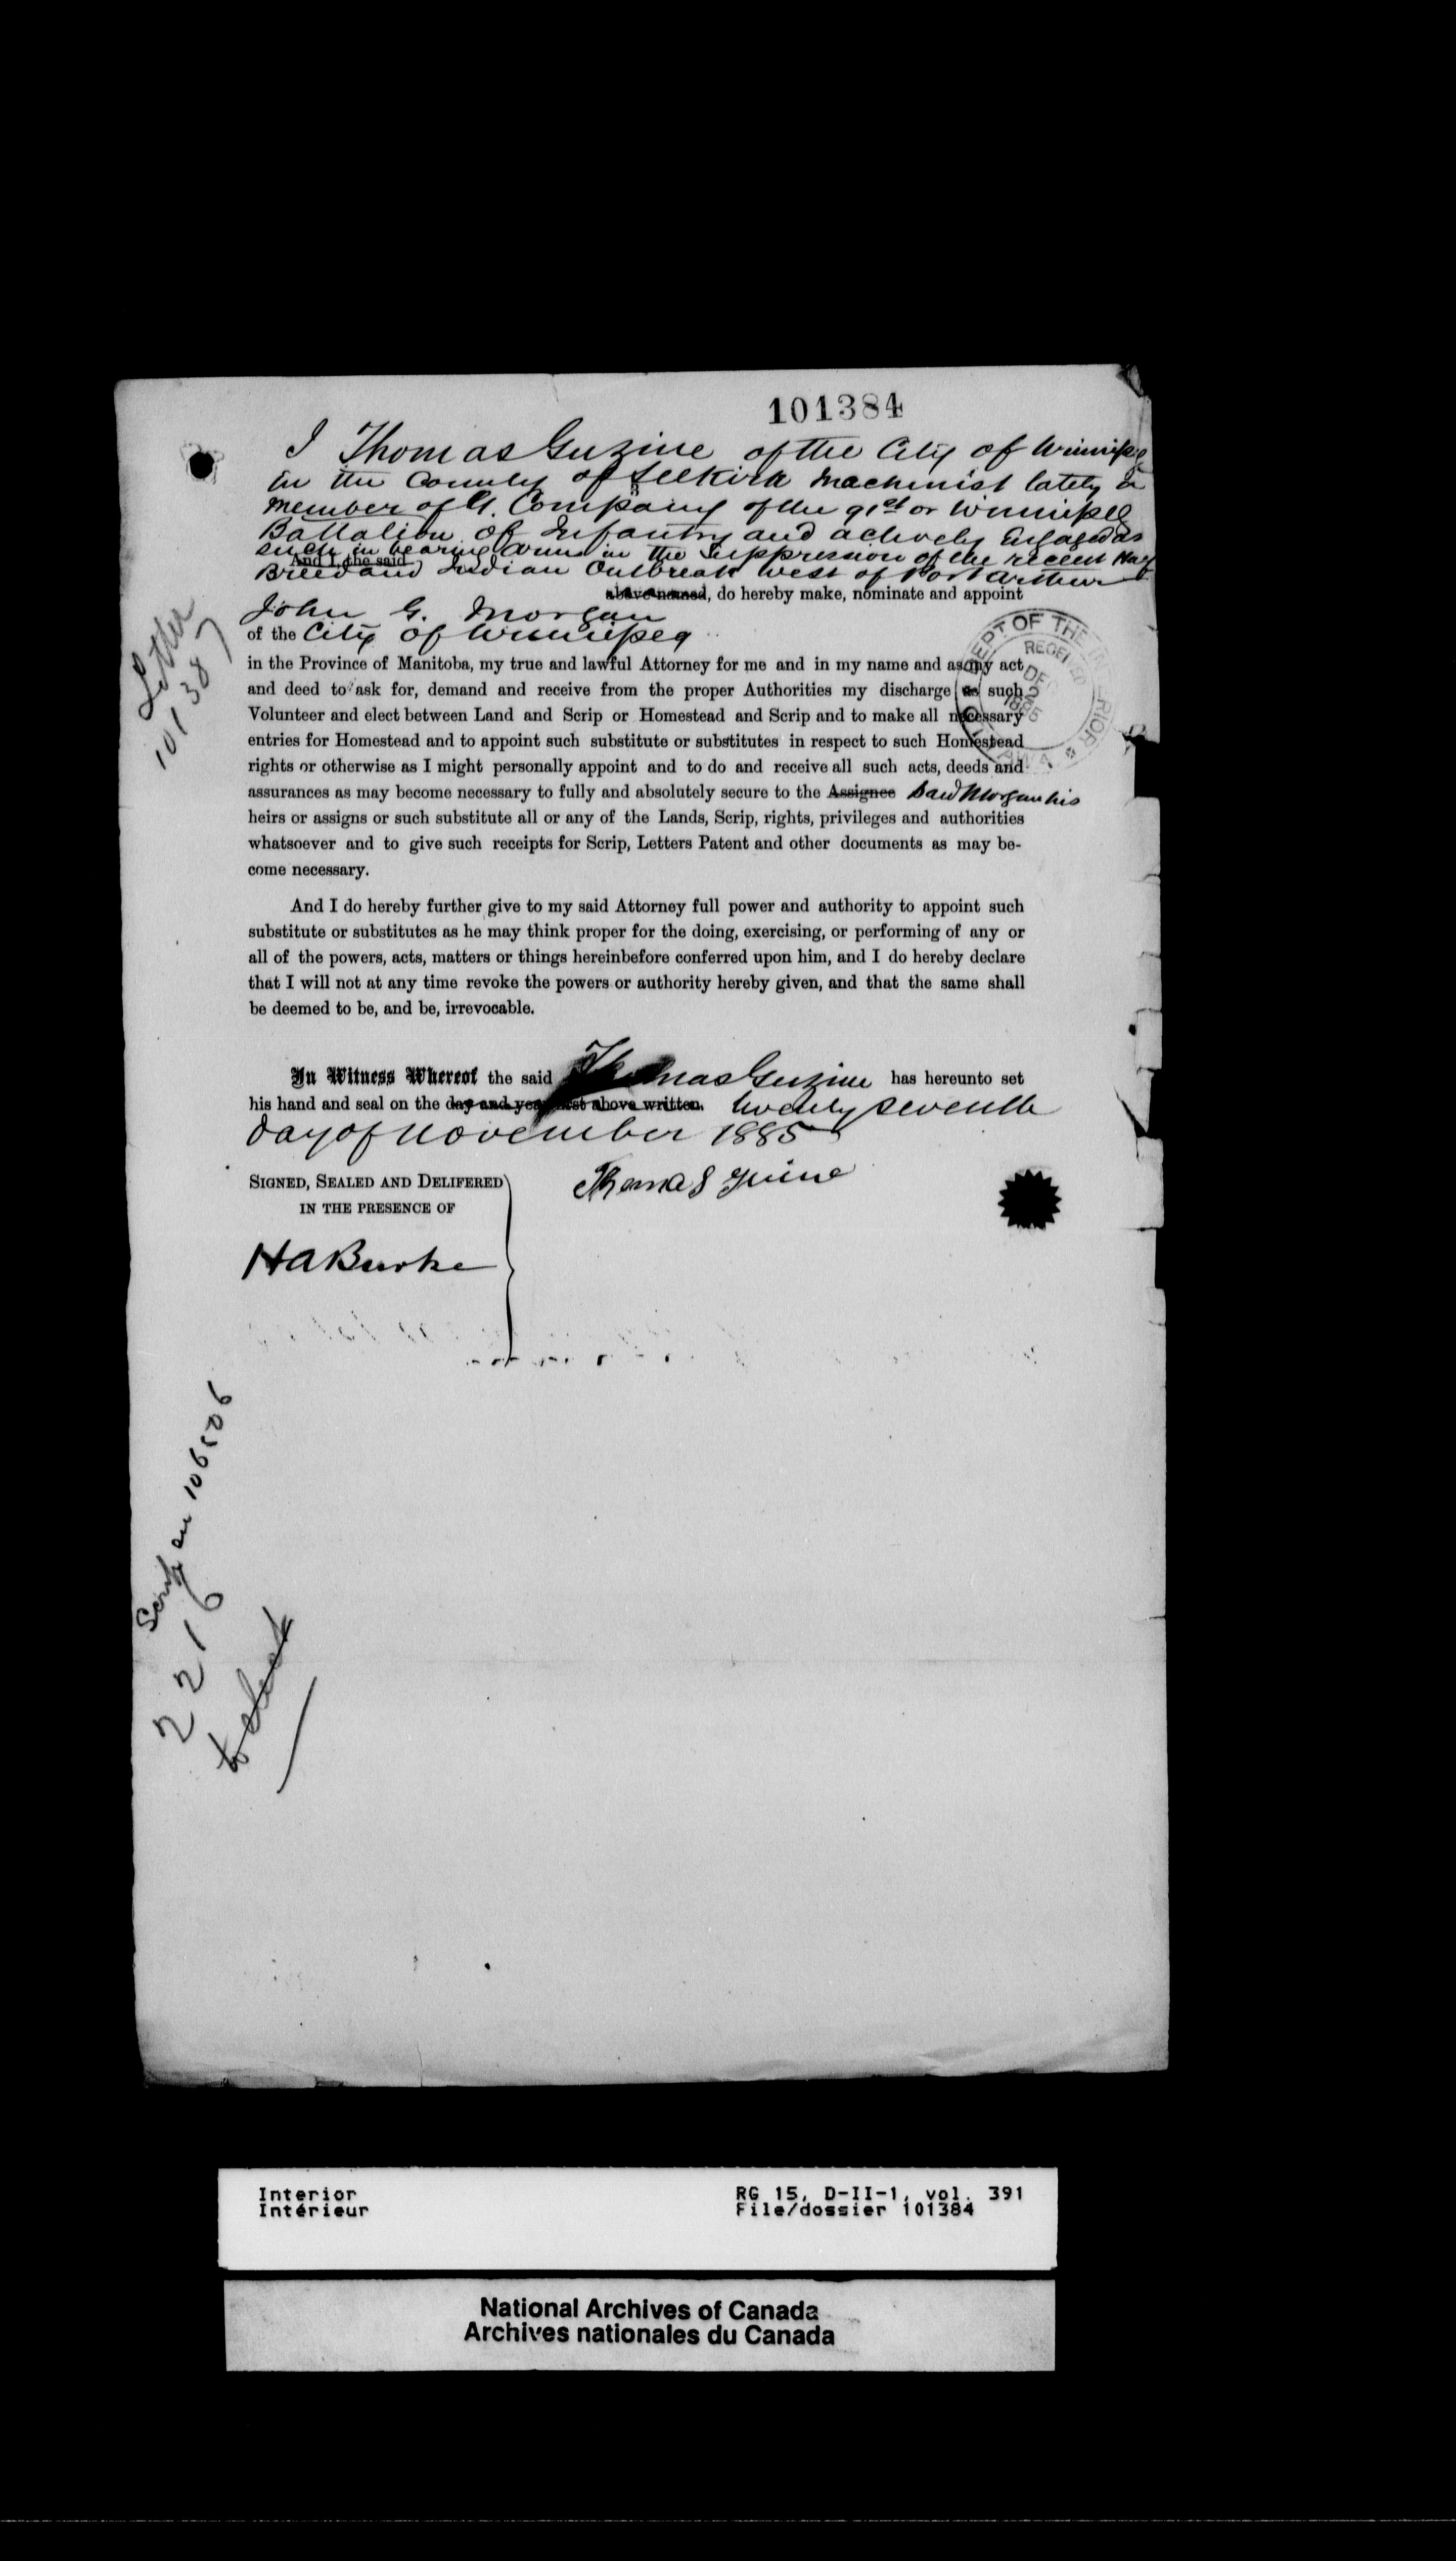 101384
I Thomas Guzine of the City of Winnipeg
in the County of Selkirk Machinist lately a
member of G. Company of the 91st or Winnipeg
Battalion of Infantry and actively Engaged as
such in bearing arms in the Suppression of the recent Half
And I, the said
Breed and Indian Outbreak West of Port Arthur
above named, do hereby make, nominate and appoint
John G. Morgan
of the City of Winnipeg
in the Province of Manitoba, my true and lawful Attorney for me and in my name and as my act
and deed to ask for, demand and receive from the proper Authorities my discharge as such
Volunteer and elect between Land and Scrip or Homestead and Scrip and to make all necessary
entries for Homestead and to appoint such substitute or substitutes in respect to such Homestead
rights or otherwise as I might personally appoint and to do and receive all such acts, deeds and
assurances as may become necessary to fully and absolutely secure to the Assignee Said Morgan his
heirs or assigns or such substitute all or any of the Lands, Scrip, rights, privileges and authorities
whatsoever and to give such receipts for Scrip, Letters Patent and other documents as may be-
come necessary.
And I do hereby further give to my said Attorney full power and authority to appoint such
substitute or substitutes as he may think proper for the doing, exercising, or performing of any or
all of the powers, acts, matters or things hereinbefore conferred upon him, and I do hereby declare
that I will not at any time revoke the powers or authority hereby given, and that the same shall
be deemed to be, and be, irrevocable.
In Witness Whereof the said Thomas Guzine has hereunto set
his hand and seal on the day and year first above written. twenty seventh
day of November 1885
SIGNED, SEALED AND DELIFERED
IN THE PRESENCE OF
Thomas Guine
H A Burke
Letter
101387
DEPT OF THE INTERIOR
RECEIVED
DEC 2
1885
OTTAWA
Scrip on 106506
2216
to elect
Interior
Intérieur
RG 15, D-II-1, vol. 391
File/dossier 101384
National Archives of Canada
Archives nationales du Canada